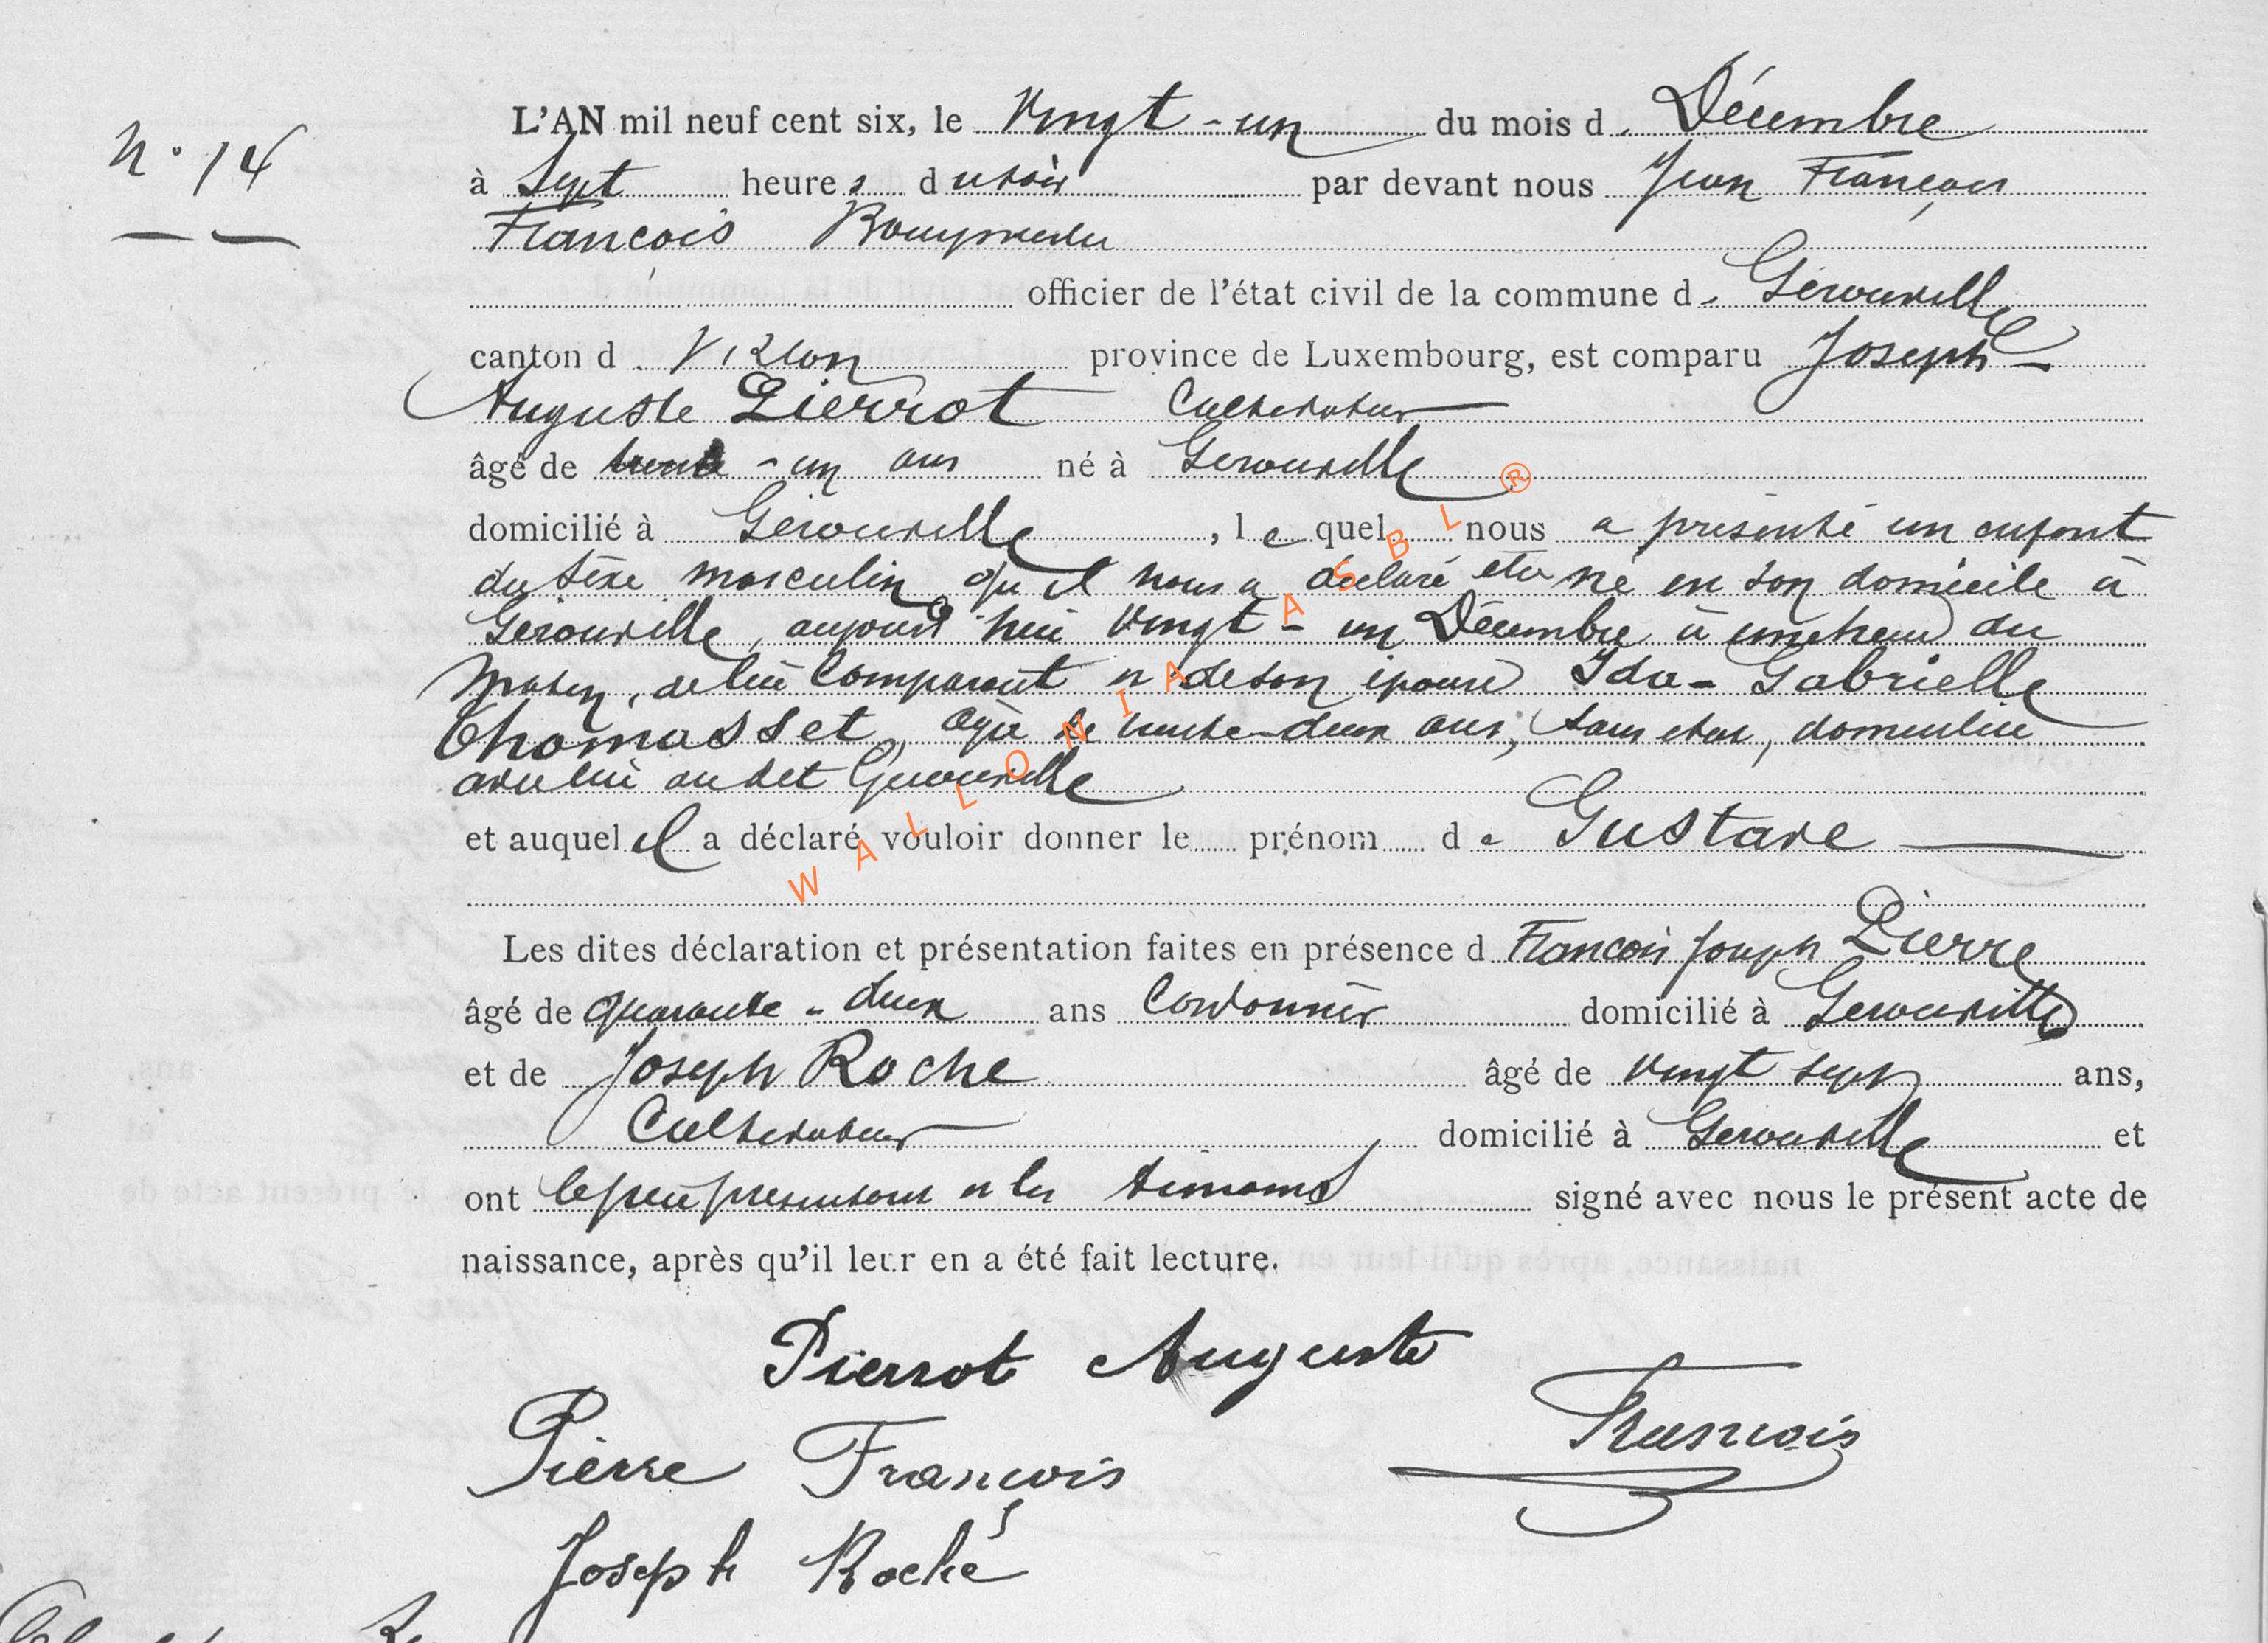 N° 14
L'AN mil neuf cent six, le Vingt-un du mois de Décembre
à Sept heures du soir par devant nous Jean François
François Bourgmestre
officier de l'état civil de la commune de Gérouville
canton de Virton province de Luxembourg, est comparu Joseph
Auguste Pierrot Cultivateur
âgé de trente-un ans né à Gérouville
domicilié à Gérouville, lequel nous a présenté un enfant
du sexe masculin qu'il nous a déclaré être né en son domicile à
Gérouville, aujourd'hui Vingt-un Décembre à une heure du
matin, de lui Comparant et de son épouse Ida-Gabrielle
Thomasset, âgée de trente-deux ans, sans état, domiciliée
avec lui au dit Gérouville
et auquel il a déclaré vouloir donner le prénom de Gustave
Les dites déclaration et présentation faites en présence d François Joseph Pierre
âgé de quarante-deux ans Cordonnier domicilié à Gérouville
et de Joseph Roche âgé de vingt sept ans,
Cultivateur domicilié à Gérouville et
ont le père présentant et les témoins signé avec nous le présent acte de
naissance, après qu'il leur en a été fait lecture.
Pierrot Auguste
Pierre François François
Joseph Roche
WALLONIA ASBL ®